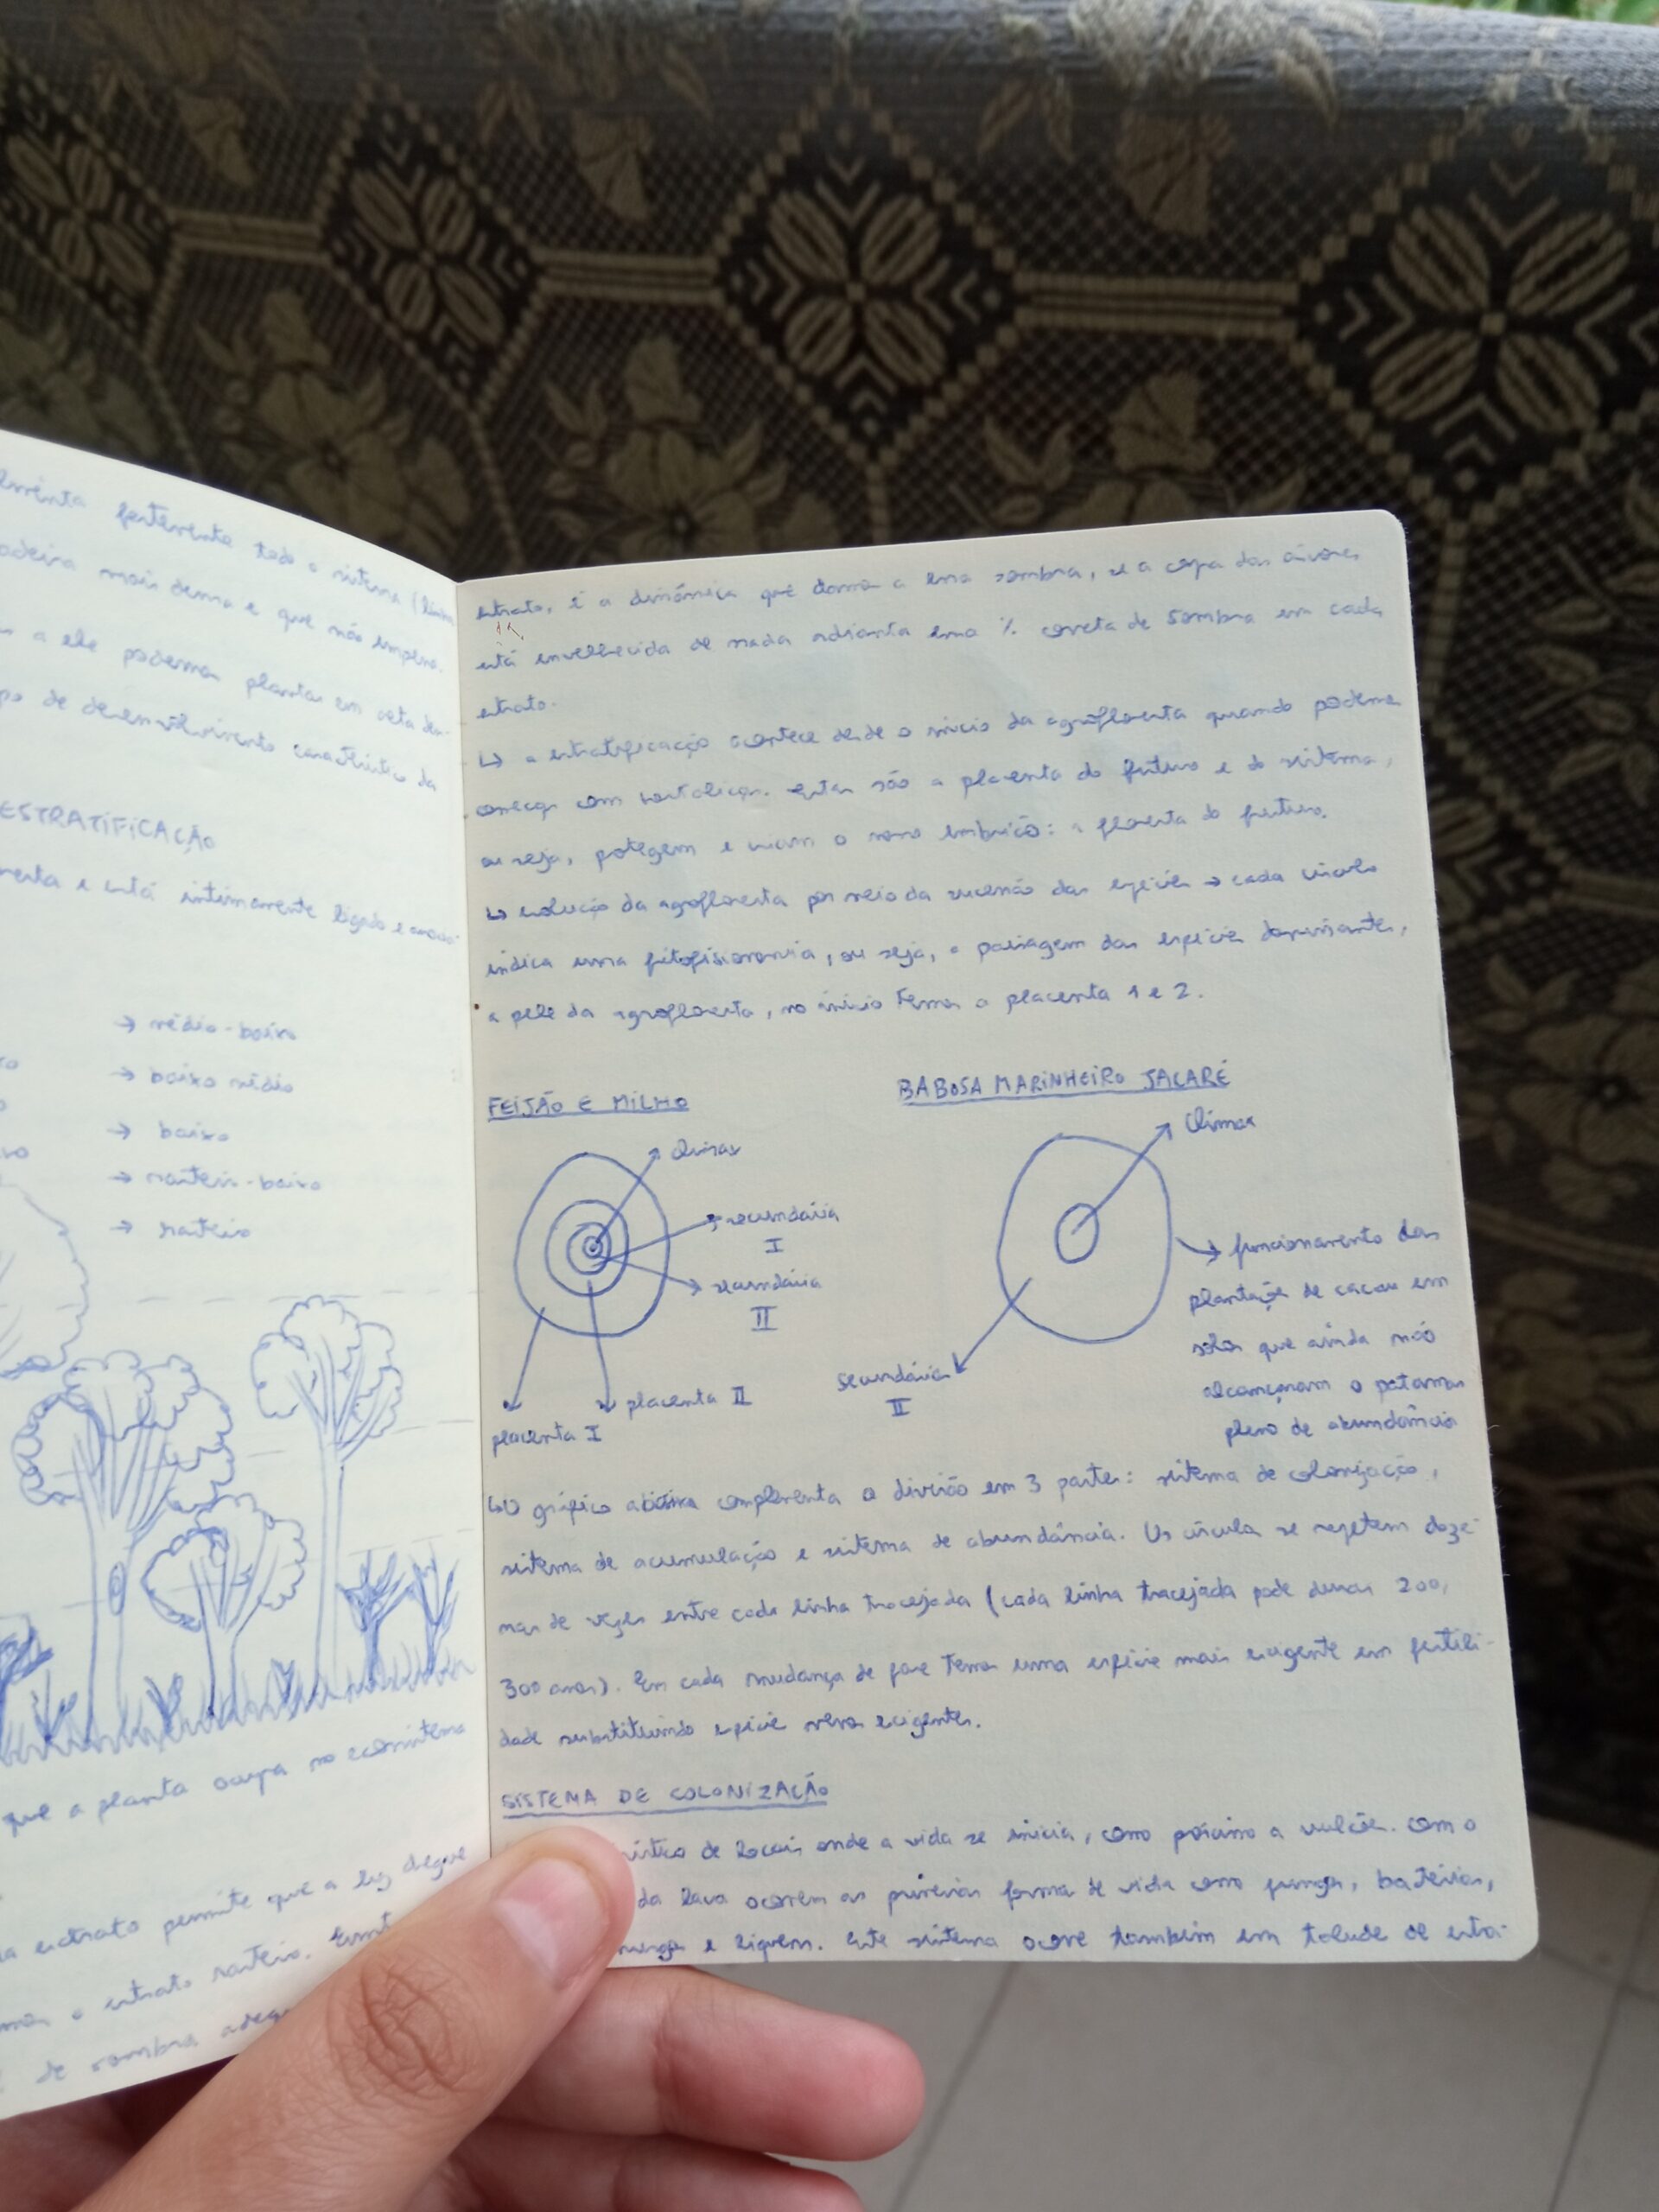 fortemente todo o sistema
mais densa e que não
a ele podemos plantar em
de desenvolvimento característico da
ESTRATIFICAÇÃO
e está intimamente ligado e
→ médio-baixo
→ baixo médio
→ baixo
→ rasteiro-baixo
→ rasteiro
que a planta ocupa no ecossistema
estrato permite que a luz chegue
o estrato rasteiro.
de sombra
estrato, é a dinâmica que damos a essa sombra, se a copa das árvores
está envelhecida de nada adianta uma % correta de sombra em cada
estrato.
↳ a estratificação acontece desde o início da agrofloresta quando podemos
começar com hortaliças. Estas são a placenta do futuro e do sistema,
ou seja, protegem e criam o novo embrião: a floresta do futuro.
↳ evolução da agrofloresta por meio da sucessão das espécies → cada círculo
indica uma fitofisionomia, ou seja, a paisagem das espécies dominantes,
a pele da agrofloresta, no início temos a placenta 1 e 2.
FEIJÃO E MILHO
Clímax
secundária
I
secundária
II
placenta II
placenta I
BABOSA MARINHEIRO JACARÉ
Clímax
secundária
II
→ funcionamento das
plantações de cacau em
solos que ainda não
alcançaram o patamar
pleno de abundância
↳ O gráfico abaixo complementa a divisão em 3 partes: sistema de colonização,
sistema de acumulação e sistema de abundância. Os círculos se repetem deze-
nas de vezes entre cada linha tracejada (cada linha tracejada pode durar 200,
300 anos). Em cada mudança de fase temos uma espécie mais exigente em fertili-
dade substituindo espécies menos exigentes.
SISTEMA DE COLONIZAÇÃO
de locais onde a vida se inicia, como próximo a vulcões. Com o
da lava ocorrem as primeiras formas de vida como fungos, bactérias,
e liquens. Este sistema ocorre também em talude de estra-